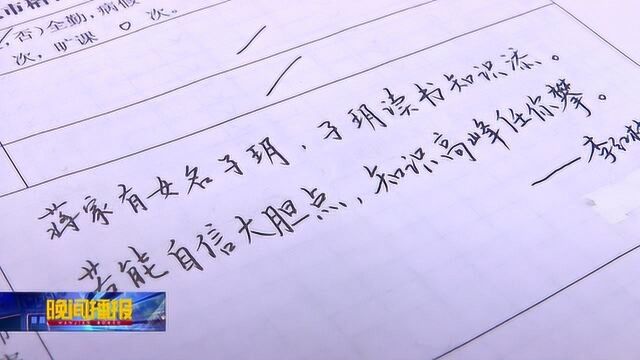 否)全勤,病假
次,旷课 0 次.
蒋家有女名子玥,子玥读书知识添。
若能自信大胆点,知识高峰任你攀。
——李
晚间播报
WANJIAN BOBAO